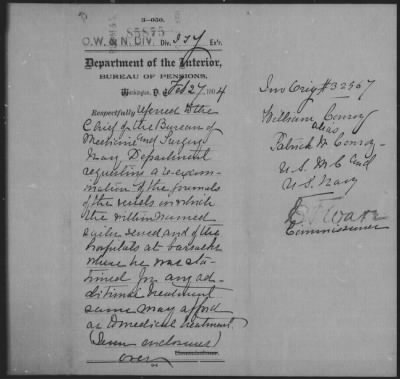 3-059.
85875
O.W. & N. DIV. Div. I S Y Ex'r.
Department of the Interior,
BUREAU OF PENSIONS,
Washington, D. C., Feb 27, 1904
Respectfully referred to the
Chief of the Bureau of
Medicine and Surgery
Navy Department
requesting a re-exam-
ination of the journals
of the vessels in which
the within named
sailor served and of the
hospitals at barracks
where he was sta-
tioned for any ad-
ditional treatment
same may afford
as to medical treatment.
(Seven enclosures)
over
Commissioner.
Inv Orig # 32567
William Conroy
alias
Patrick M Conroy
U.S. M C and
U.S. Navy
Commissioner